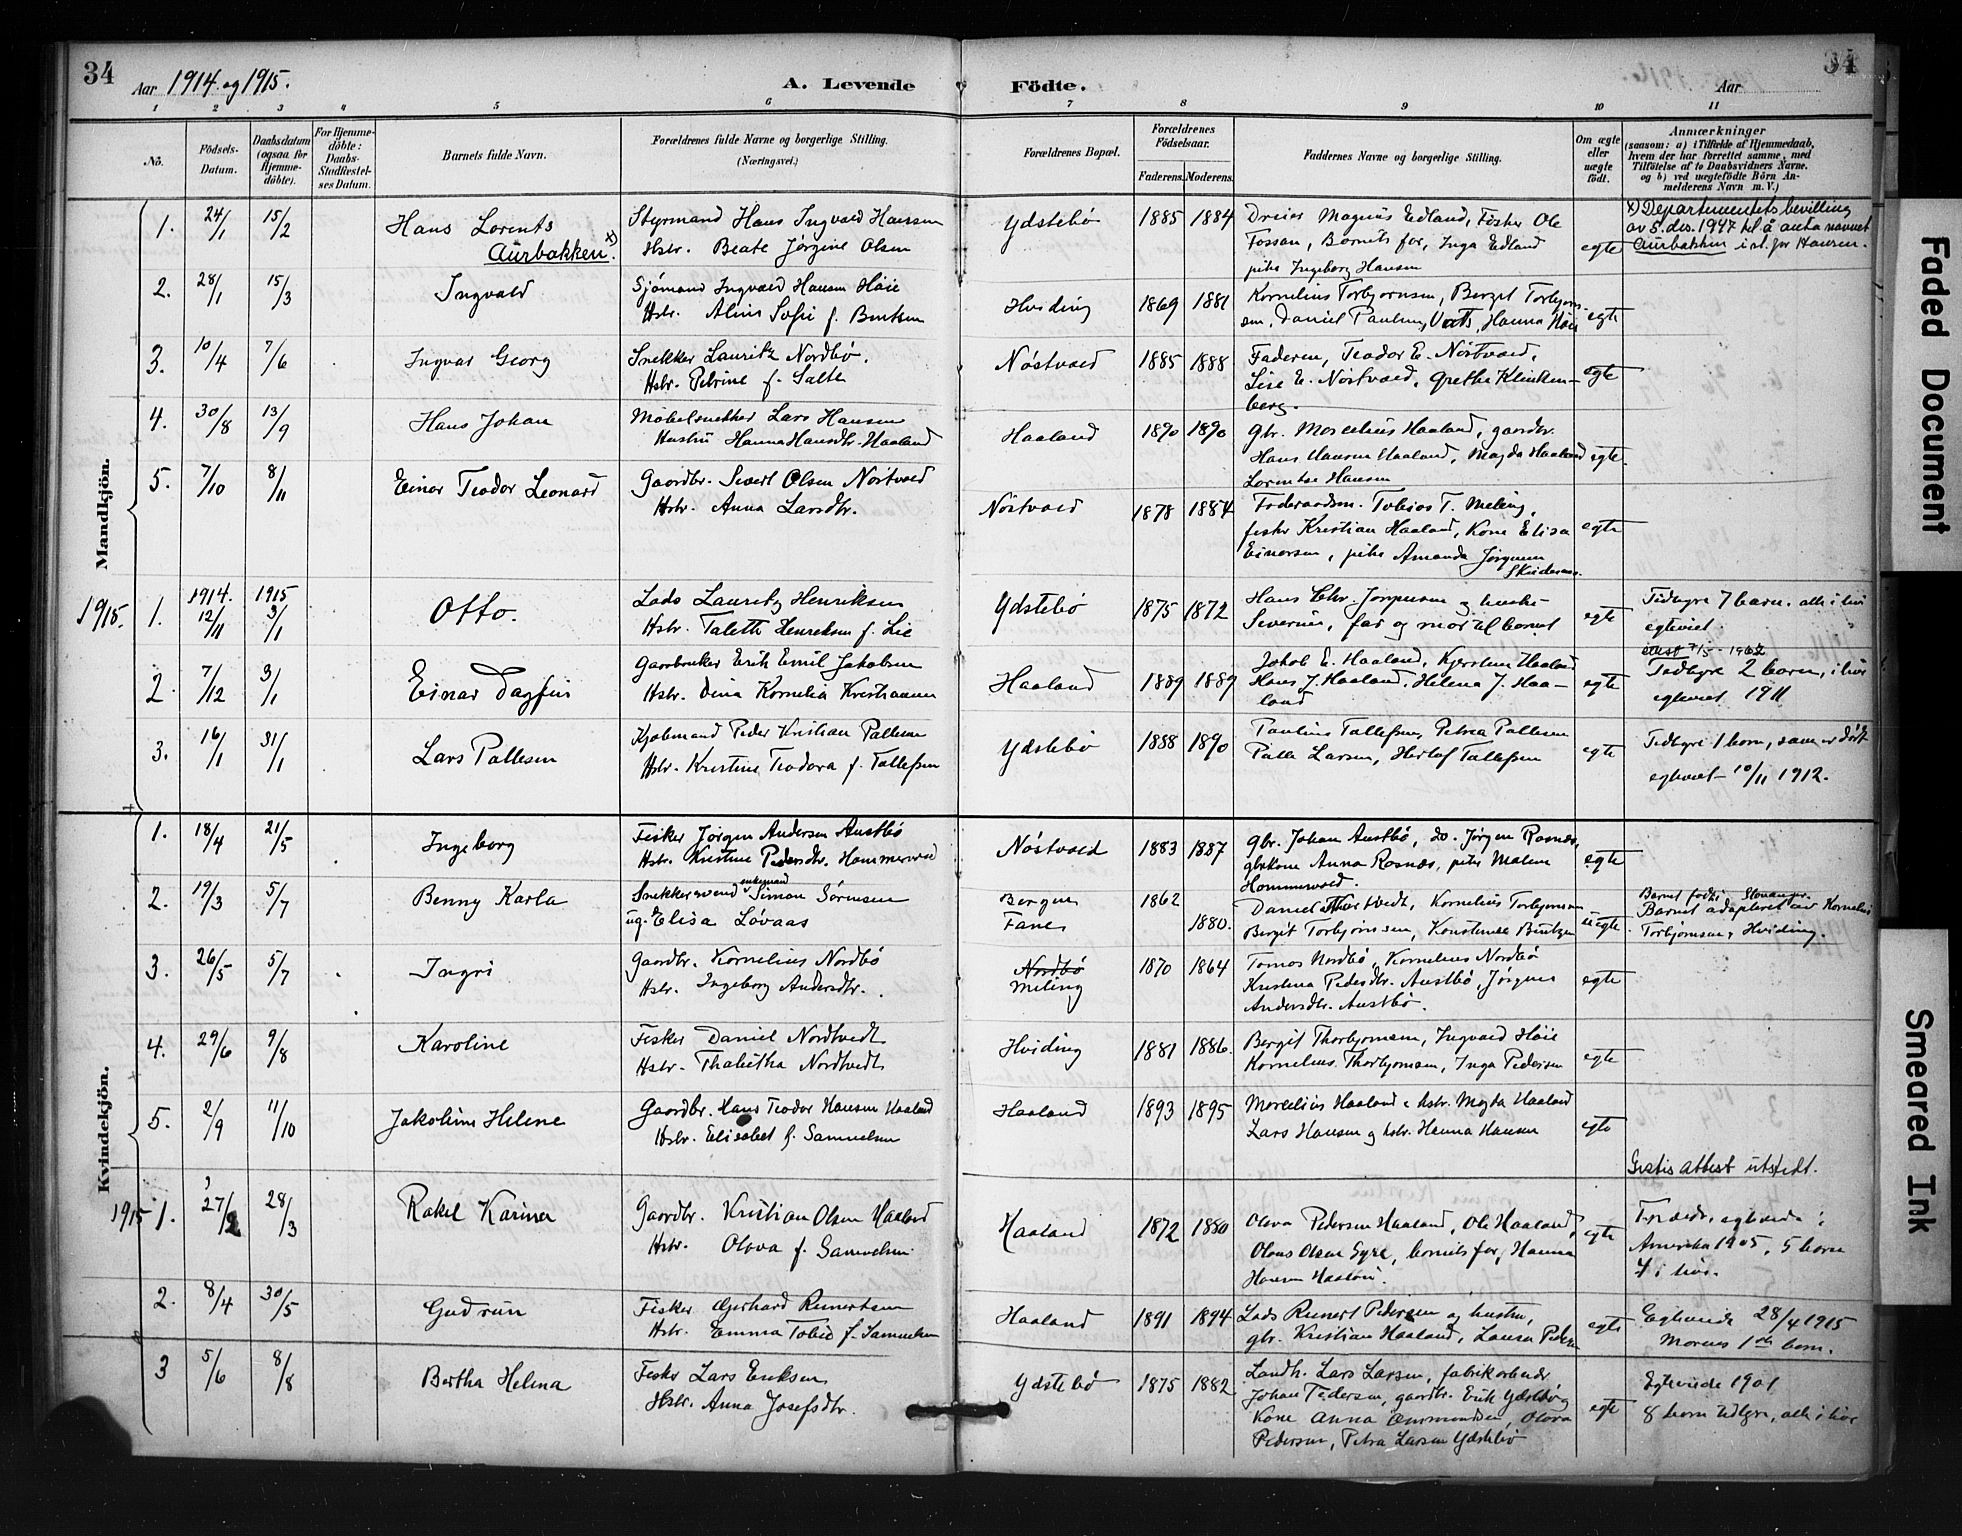 34
Aar 1914 og 1915.
A. Levende Födte.
Aar
34
1 2 3 4 5 6 7 8 9 10 11
No.
Födsels-Datum.
Daabsdatum (ogsaa for Hjemme-döbte).
For Hjemme-döbte: Daabs-Stadfæstel-ses Datum.
Barnets fulde Navn.
Forældrenes fulde Navne og borgerlige Stilling. (Næringsvei.)
Forældrenes Bopæl.
Forældrenes Födselsaar.
Faderens. Moderens.
Faddernes Navne og borgerlige Stilling.
Om ægte eller uægte födt.
Anmærkninger
(saasom: a) i Tilfælde af Hjemmedaab, hvem der har forrettet samme, med Tilföielse af to Daabsvidners Navne. og b) ved uægtefödte Börn An-melderens Navn m. V.)
Mandkjön.
1. 24/1 15/2 Hans Lorents Aurbakken x)
Styrmand Hans Ingvald Hansen
Hstr. Beate Jørgine Olsen
Ydstebø 1885 1884
Dreier Magnus Edland, Fisker Ole
Fossan, Barnets far, Inga Edland
pike Ingeborg Hansen
egte
x) Departementets bevilling
av 5. des. 1947 til å anta navnet
Aurbakken i st. for Hansen.
2. 28/1 15/3 Ingvald
Sjömand Ingvald Hansen Höie
Hstr. Aline Sofie f. Bentsen
Hviding 1869 1881
Kornelius Torbjørnsen, Bergit Torbjørn-
sen, Daniel Paulsen, Vatts, Hanna Höie
egte
3. 10/4 7/6 Ingvar Georg
Snekker Lauritz Nordbø.
Hstr. Petrine f. Salte
Nøstvold 1885 1888
Faderen, Teodor E. Nøstvold,
Lise E. Nøstvold, Grethe Klinken-
berg.
egte
4. 30/8 13/9 Hans Johan
Møbelsnekker Lars Hansen
Hustru Hanna Hansdtr. Haaland
Haaland 1890 1890
Gbr. Marselius Haaland, gaardbr.
Hans Hansen Haaland, Magda Haaland
Lorentse Hansen
egte
5. 7/10 8/11 Einar Teodor Leonard
Gaardbr. Sivert Olsen Nøstvold
Hstr. Anna Larsdtr.
Nøstvold 1878 1884
Foderaadsm. Tobias T. Meling,
fisker Kristian Haaland, Kone Elisa
Einarsen, pike Amanda Jørgensen
egte
1915.
1. 1914. 12/11 1915 3/1 Otto.
Lods Lauritz Henriksen
Hstr. Talette Henriksen f. Lie
Ydstebø 1875 1872
Hans Chr. Jørgensen og hustru
Severine, far og mor til barnet
egte
Tidligre 7 barn, alle i live
egteviet
2. 7/12 3/1 Einar Dagfin
Gaardbruker Erik Emil Jakobsen
Hstr. Dina Kornelia Kristiansen
Haaland 1889 1889
Jakob E. Haaland, Kjerstine Haaland
Hans J. Haaland, Helena J. Haa-
land
egte
attest 7/5-1962
Tidligre 2 barn, i live
egteviet 1911
3. 16/1 31/1 Lars Pallesen
Kjøbmand Peder Kristian Pallesen
Hstr. Kristine Teodora f. Tallefsen
Ydstebø 1888 1890
Pauline Tallefsen, Petrea Pallesen
Palle Larsen, Herlof Tallefsen
egte
Tidligre 1 barn, som er dødt
egteviet 10/11 1912.
Kvindekjön.
1. 18/4 21/5 Ingeborg
Fisker Jørgen Andersen Austbø
Hstr. Kristine Pedersdtr. Hammersvold
Nøstvold 1883 1887
Gbr. Johan Austbø, do. Jørgen Rosnæs,
gbrkone Anna Rosnæs, pike Malene
Hommervold.
egte
2. 19/3 5/7 Benny Karla
Snekkersvend enkemand Simon Sørensen
ug. Elisa Løvaas
Bergen
Fane
1862
1880.
Daniel Nordtvedt, Kornelius Torbjørnsen
Bergit Torbjørnsen, Konstanse Bentsen
uegte
Barnet født i Stavanger.
Barnet adopteret av Kornelius
Torbjørnsen, Hviding.
3. 26/5 5/7 Ingri
Gaardbr. Kornelius Nordbø
Hstr. Ingeborg Andersdtr.
Nordbø
Meling
1870 1864
Tomas Nordbø, Kornelius Nordbø
Kristina Pedersdtr. Austbø, Jørgine
Andersdtr. Austbø.
egte
4. 29/6 9/8 Karoline
Fisker Daniel Nordtvedt
Hstr. Thabitha Nordtvedt
Hviding 1881 1886.
Bergit Thorbjørnsen, Ingvald Höie
Kornelius Thorbjørnsen, Inga Pedersen
egte
5. 2/9 11/10 Jakobine Helene
Gaardbr. Hans Teodor Hansen Haaland
Hstr. Elisabet f. Samuelsen
Haaland 1893 1895
Marselius Haaland & hstr. Magda Haaland
Lars Hansen og hstr. Hanna Hansen
egte
Gratis attest utstedt.
1915 1. 27/2 28/3 Rakel Karine
Gaardbr. Kristian Olsen Haaland
Hstr. Olava f. Samuelsen
Haaland 1872 1880
Olava Pedersen Haaland, Ole Haaland,
Olaus Olsen Eyre, barnets far, Hanna
Hansen Haaland.
egte
Forældr. egteviede i
Amerika 1905, 5 barn
4 i live.
2. 8/4 30/5 Gudrun
Fisker Gerhard Reinertsen
Hstr. Emma Tobie f. Samuelsen
Haaland 1891 1894
Lods Reinert Pedersen og hustru,
gbr. Kristian Haaland, Laura Pedersen
egte
Egteviede 28/4 1915
Morens 1ste barn.
3 5/6 8/8 Bertha Helena
Fisker Lars Eriksen
Hstr. Anna Josefsdtr.
Ydstebø 1875 1882
Landh. Lars Larsen, fabrikarbeider
Johan Pedersen, gaardbr. Erik Ydstebø,
Kone Anna Aanmundsen, Olava
Pedersen, Petra Larsen Ydstebø
egte
Egteviede 1901
8 barn tidlgre, alle i live
Faded Document
Smeared Ink